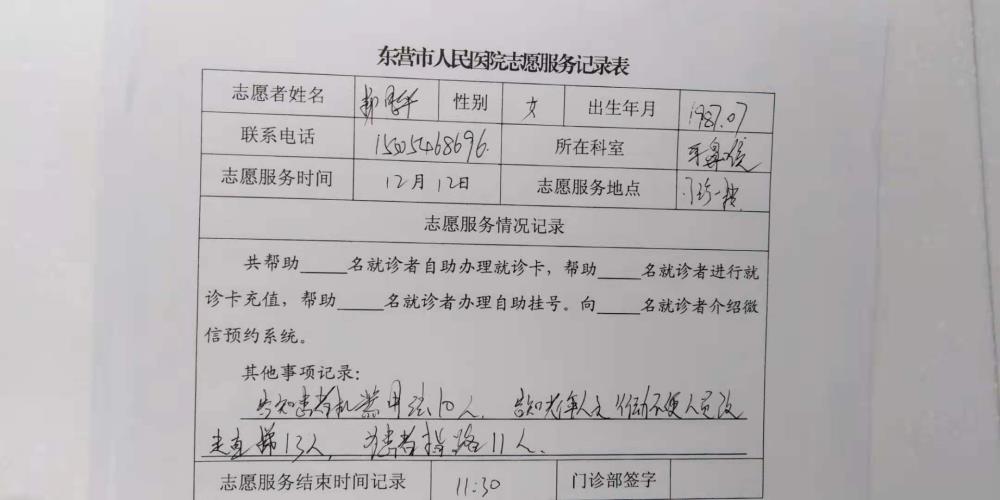 东营市人民医院志愿服务记录表
志愿者姓名 性别 女 出生年月 1987.07
联系电话 15054668696 所在科室 耳鼻喉
志愿服务时间 12月12日 志愿服务地点 门诊一楼
志愿服务情况记录
共帮助_____名就诊者自助办理就诊卡，帮助_____名就诊者进行就
诊卡充值，帮助_____名就诊者办理自助挂号。向_____名就诊者介绍微
信预约系统。
其他事项记录：
告知患者机器用法10人， 告知老年人及行动不便人员改
走直梯13人， 为患者指路11人.
志愿服务结束时间记录 11:30 门诊部签字